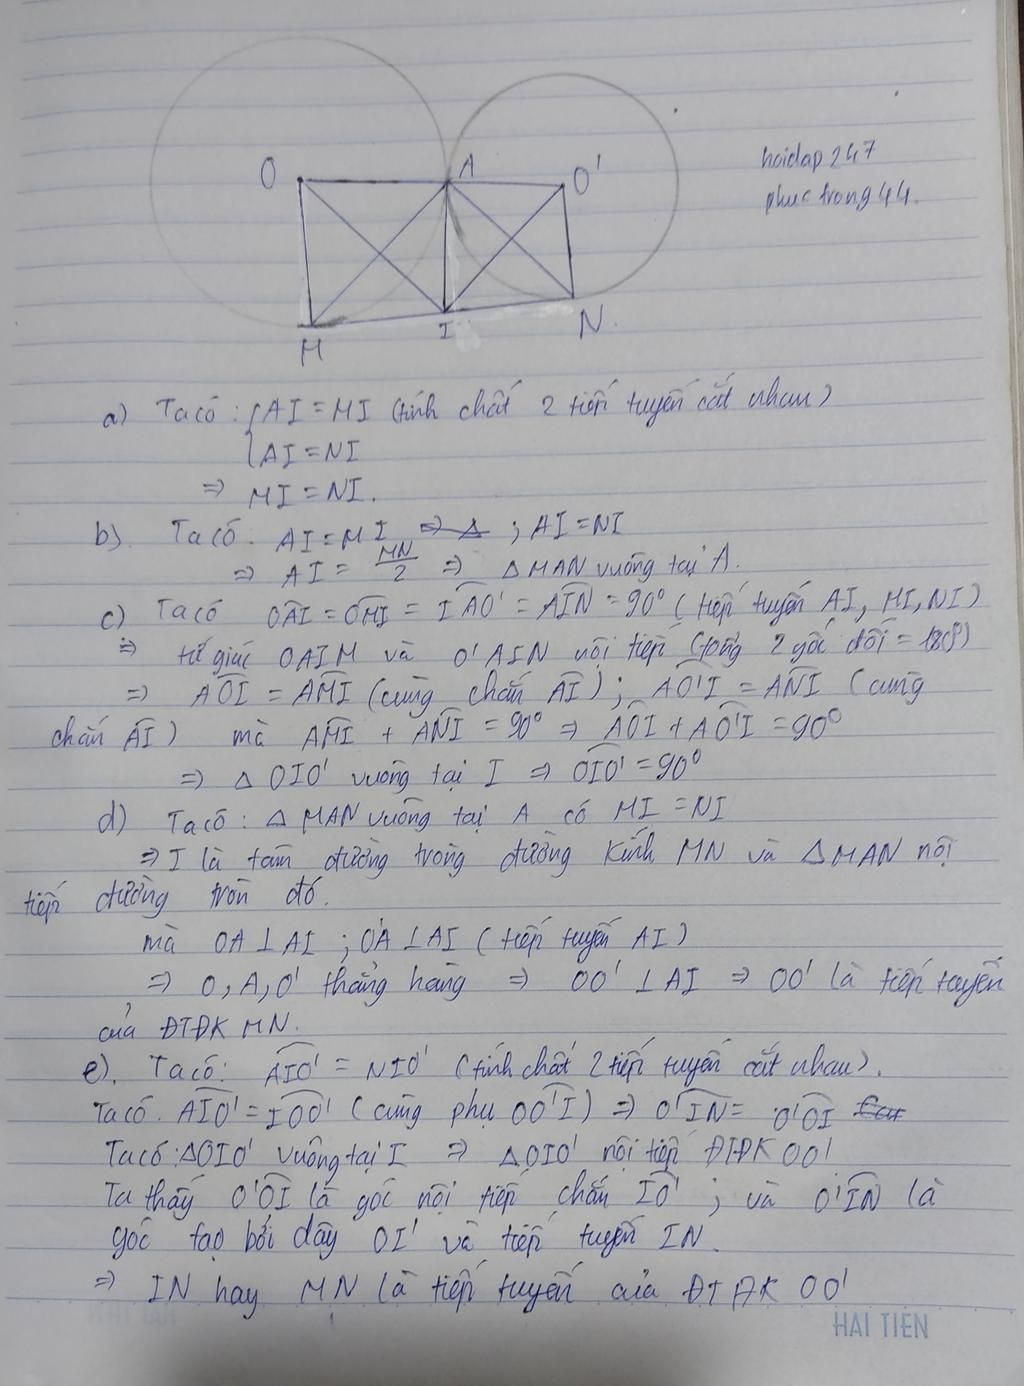 hoidap 247
phuctrong44.
O
A
O'
M
I
N.
a) Ta có : { AI = MI (tính chất 2 tiếp tuyến cắt nhau)
AI = NI
=> MI = NI.
b). Ta có: AI = MI => Δ ; AI = NI
=> AI = MN/2 => Δ MAN vuông tại A.
c) Ta có OAI = OMI = IAO' = AIN = 90° (tiếp tuyến AI, MI, NI)
=> tứ giác OAIM và O'AIN nội tiếp (tổng 2 góc đối = 180°)
=> AOI = AMI (cùng chắn AI) ; AO'I = ANI (cùng
chắn AI) mà AMI + ANI = 90° => AOI + AO'I = 90°
=> Δ OIO' vuông tại I => OIO' = 90°
d) Ta có : Δ MAN vuông tại A có MI = NI
=> I là tâm đường tròng đường kính MN và Δ MAN nội
tiếp đường tròn đó.
mà OA ⊥ AI ; O'A ⊥ AI (tiếp tuyến AI)
=> O, A, O' thẳng hàng => OO' ⊥ AI => OO' là tiếp tuyến
của ĐTĐK MN.
e). Ta có: AIO' = NIO' (tính chất 2 tiếp tuyến cắt nhau).
Ta có. AIO' = IOO' (cùng phụ OO'I) => O'IN = O'OI
Ta có : ΔOIO' vuông tại I => ΔOIO' nội tiếp ĐTĐK OO'
Ta thấy O'OI là góc nội tiếp chắn IO' ; và O'IN là
góc tạo bởi dây OI' và tiếp tuyến IN.
=> IN hay MN là tiếp tuyến của ĐTĐK OO'
HAI TIEN